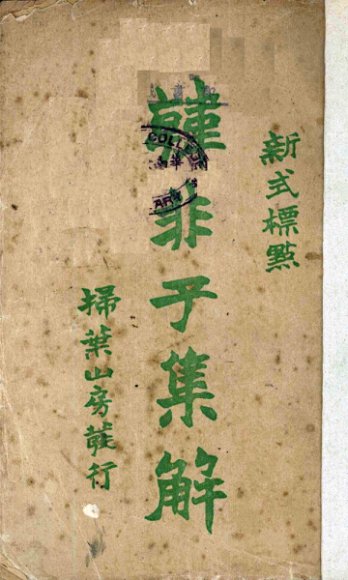 新式標點
韓非子集解
掃葉山房發行
COLLE